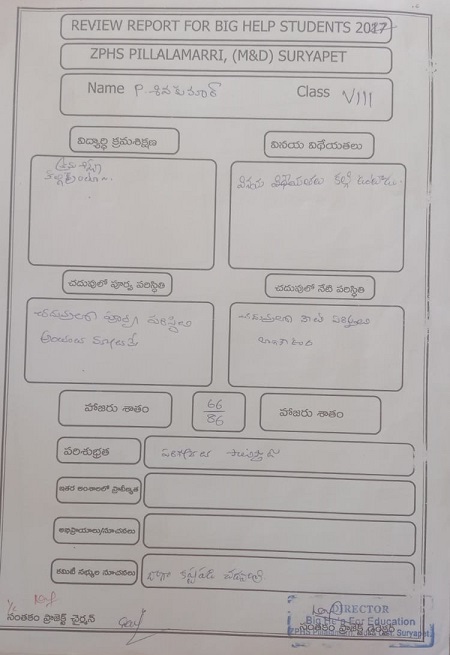 REVIEW REPORT FOR BIG HELP STUDENTS 2017
ZPHS PILLALAMARRI, (M&D) SURYAPET
Name P. శివకుమార్ Class VIII
విద్యార్థి క్రమశిక్షణ
వినయ విధేయతలు
వినయ విధేయతలు కల్గి ఉంటాడు.
చదువులో పూర్వ పరిస్థితి
చదువులో నేటి పరిస్థితి
చదువులో పూర్వ పరిస్థితి
బాగా ఉంది
హాజరు శాతం
66
86
హాజరు శాతం
పరిశుభ్రత
ఇతర అంశాలలో ప్రావీణ్యత
అభిప్రాయాలు/సూచనలు
కమిటీ సభ్యుల సూచనలు
బాగా కష్టపడి చదవాలి.
సంతకం ప్రాజెక్ట్ చైర్మన్
DIRECTOR
Big Help For Education
సంతకం ప్రాజెక్ట్ డైరెక్టర్